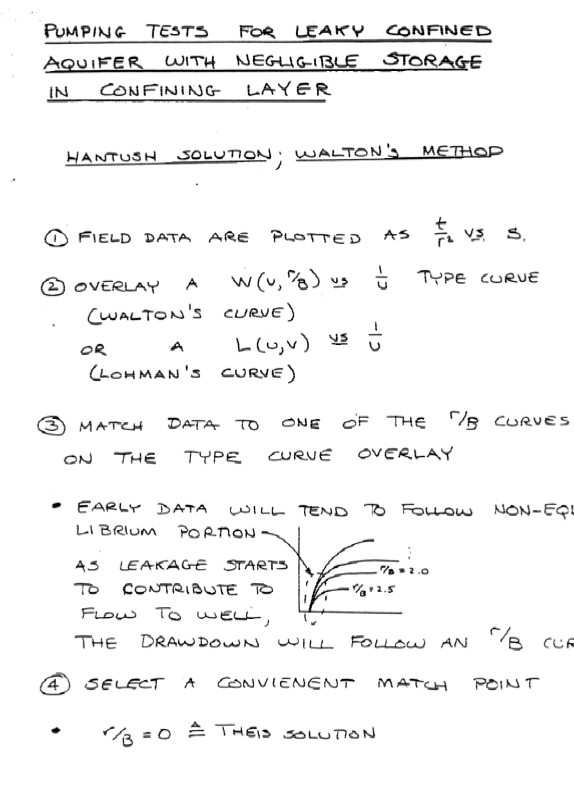 PUMPING TESTS FOR LEAKY CONFINED
AQUIFER WITH NEGLIGIBLE STORAGE
IN CONFINING LAYER
HANTUSH SOLUTION; WALTON'S METHOD
① FIELD DATA ARE PLOTTED AS t/r² VS. S.
② OVERLAY A W(u, r/B) vs 1/u TYPE CURVE
(WALTON'S CURVE)
OR A L(u,v) vs 1/u
(LOHMAN'S CURVE)
③ MATCH DATA TO ONE OF THE r/B CURVES
ON THE TYPE CURVE OVERLAY
• EARLY DATA WILL TEND TO FOLLOW NON-EQUI
LIBRIUM PORTION
AS LEAKAGE STARTS
r/B = 2.0
TO CONTRIBUTE TO
r/B = 2.5
FLOW TO WELL,
THE DRAWDOWN WILL FOLLOW AN r/B CUR
④ SELECT A CONVIENENT MATCH POINT
• r/B = 0 ≙ THEIS SOLUTION